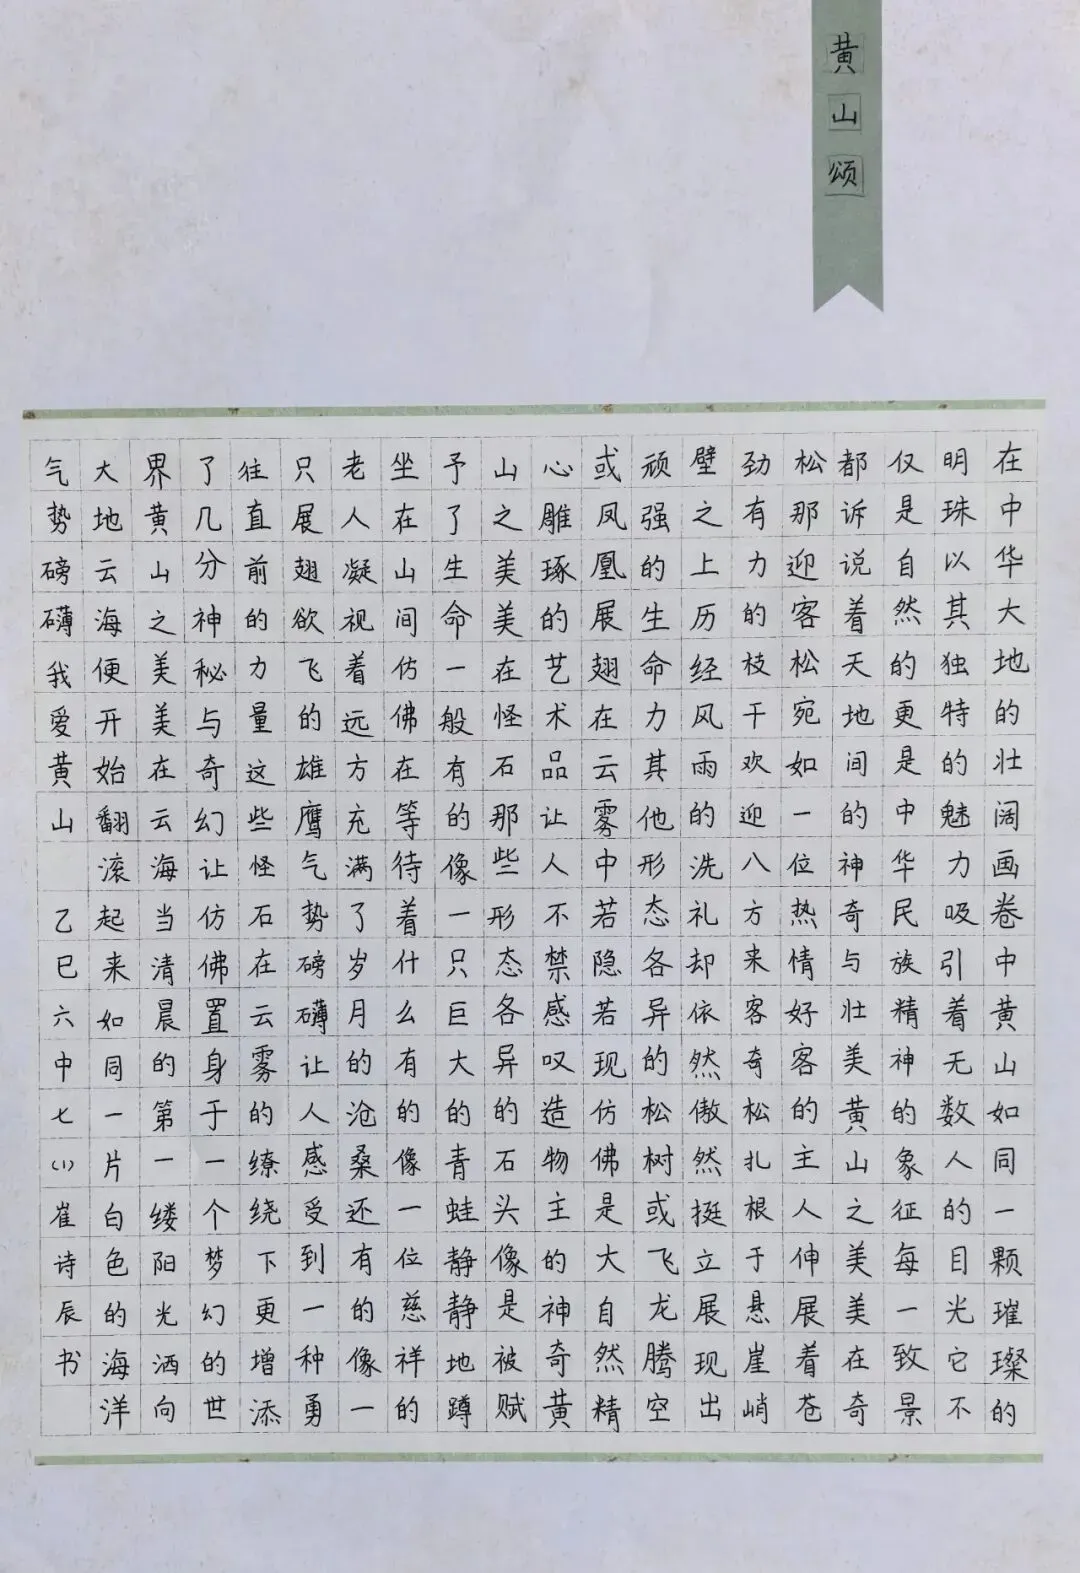 黄山颂
在中华大地的壮阔画卷中黄山如同一颗璀璨的
明珠以其独特的魅力吸引着无数人的目光它不
仅是自然的更是中华民族精神的象征每一致景
都诉说着天地间的神奇与壮美黄山之美美在奇
松那迎客松宛如一位热情好客的主人伸展着苍
劲有力的枝干欢迎八方来客奇松扎根于悬崖峭
壁之上历经风雨的洗礼却依然傲然挺立展现出
顽强的生命力其他形态各异的松树或飞龙腾空
或凤凰展翅在云雾中若隐若现仿佛是大自然精
心雕琢的艺术品让人不禁感叹造物主的神奇黄
山之美美在怪石那些形态各异的石头像是被赋
予了生命一般有的像一只巨大的青蛙静静地蹲
坐在山间仿佛在等待着什么有的像一位慈祥的
老人凝视着远方充满了岁月的沧桑还有的像一
只展翅欲飞的雄鹰气势磅礴让人感受到一种勇
往直前的力量这些怪石在云雾的缭绕下更增添
了几分神秘与奇幻让仿佛置身于一个梦幻的世
界黄山之美美在云海当清晨的第一缕阳光洒向
大地云海便开始翻滚起来如同一片白色的海洋
气势磅礴我爱黄山 乙巳六中七(1)崔诗辰书